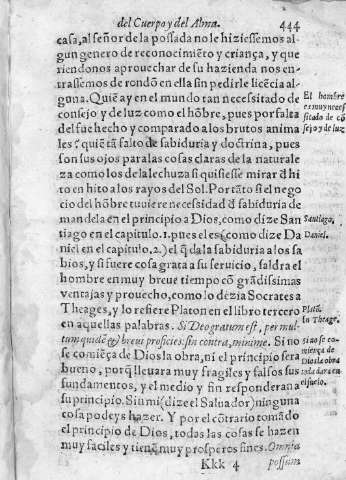 del Cuerpo y del Alma. 444
casa, al señor de la possada no le hiziessemos al
gun genero de reconocimiẽto y criança, y que
riendonos aprouechar de su hazienda nos en-
trassemos de rondõ en ella sin pedirle licẽcia al-
guna. Quiẽ ay en el mundo tan necessitado de
consejo y de luz como el hõbre, pues por falta
del fue hecho y comparado a los brutos anima
les? quiẽ tã falto de sabiduria y doctrina, pues
son sus ojos para las cosas claras de la naturale
za como los de la lechuza si quisiesse mirar d hi
to en hito a los rayos del Sol. Por tãto si el nego
cio del hõbre tuuiere necessidad d sabiduria de
mandela en el principio a Dios, como dize San
tiago en el capitulo. 1. pues el es (como dize Da
niel en el capitulo. 2.) el q̃ da la sabiduria a los sa
bios, y si fuere cosa grata a su seruicio, saldra el
hombre en muy breue tiempo cõ grãdissimas
ventajas y prouecho, como lo dezia Socrates a
Theages, y lo refiere Platon en el libro tercero
en aquellas palabras. Si Deo gratum est, per mul
tum quidẽ & breui proficies: sin contra, minime. Si no
se comiẽça de Dios la obra, ni el principio sera
bueno, porq̃ lleuara muy fragiles y falsos sus
fundamentos, y el medio y fin responderan a
su principio. Sin mi (dize el Saluador) ninguna
cosa podeys hazer. Y por el cõtrario tomãdo
el principio de Dios, todas las cosas se hazen
muy faciles y tienẽ muy prosperos fines. Omnia
Kkk 4 possum
El hombre
es muy neces
sitado de cõ
sejo y de luz
Santiago.
Daniel.
Platõ.
In Theage.
Si no se co
miẽça de
Dios la obra